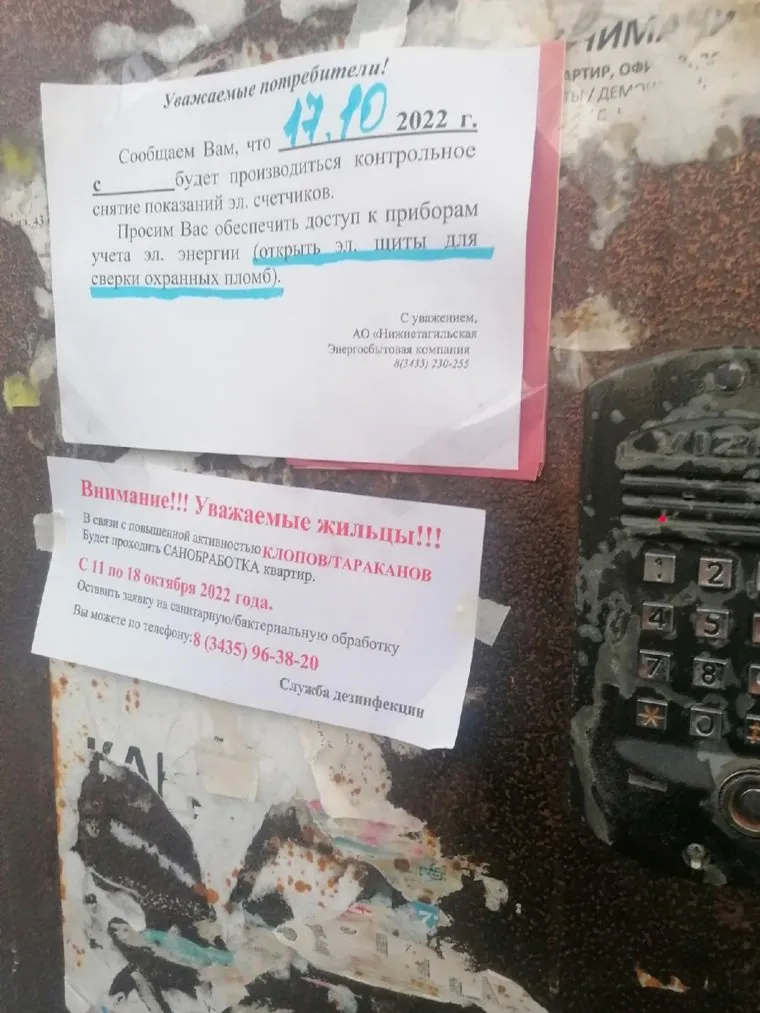 Уважаемые потребители!
Сообщаем Вам, что 17.10 2022 г.
с будет производиться контрольное
снятие показаний эл. счетчиков.
Просим Вас обеспечить доступ к приборам
учета эл. энергии (открыть эл. щиты для
сверки охранных пломб).
С уважением,
АО «Нижнетагильская
Энергосбытовая компания
8(3435) 230-255
Внимание!!! Уважаемые жильцы!!!
В связи с повышенной активностью КЛОПОВ/ТАРАКАНОВ
Будет проходить САНОБРАБОТКА квартир.
С 11 по 18 октября 2022 года.
Оставить заявку на санитарную/бактериальную обработку
Вы можете по телефону:8 (3435) 96-38-20
Служба дезинфекции
1 2
4 5
7 8
* 0